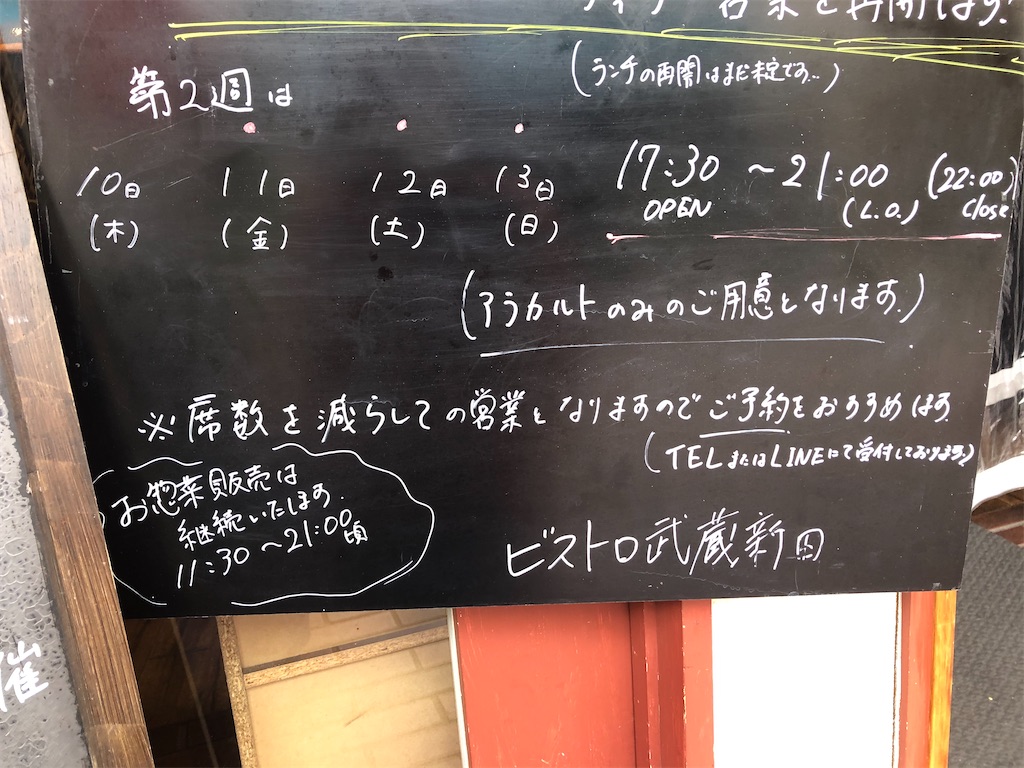 営業を再開します!
(ランチの再開はまだ未定です…)
第2週は
10日 11日 12日 13日 17:30 ~ 21:00 (22:00)
(木) (金) (土) (日) OPEN (L.O.) Close
(アラカルトのみのご用意となります。)
※席数を減らしての営業となりますのでご予約をおすすめします
(TELまたはLINEにて受付しております)
お惣菜販売は
継続いたします
11:30~21:00頃
ビストロ武蔵新田
催